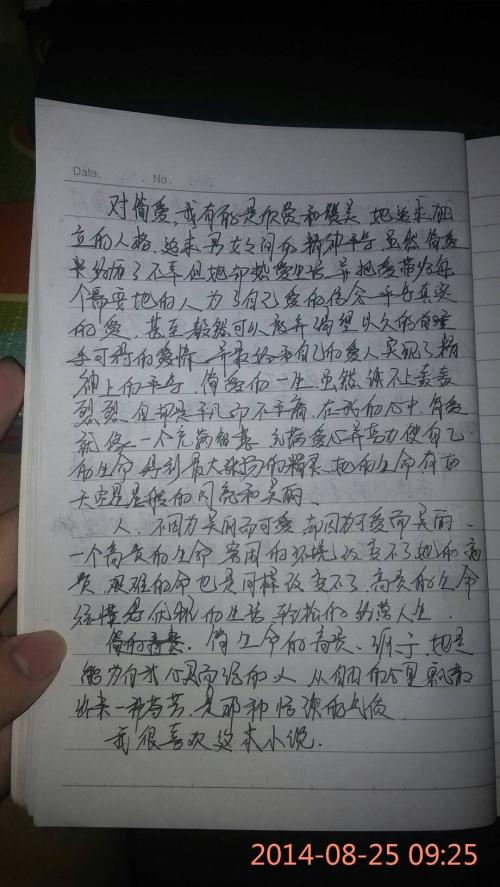 Date. No.
对简爱，我有的是欣赏和赞美，她追求独
立的人格，追求男女之间的精神平等。虽然简爱
经历了不幸但她却热爱生活并把爱带给每
个需要她的人。为了自己爱的信念——平等真实
的爱，甚至毅然可以放弃渴望以久的
手可得的爱情，并最终和自己的爱人实现了精
神上的平等。简爱的一生虽然谈不上轰轰
烈烈，但却是平凡却不平庸。在我的心中，简爱
就像一个充满智慧，充满爱心并努力使自己
的生命得到最大张扬的精灵，她的生命有如
天空星星般的闪亮和美丽。
人，不因为美丽而可爱，却因为可爱而美丽。
一个高贵的生命，穷困的环境改变不了她的高
贵，艰难的命也是同样改变不了。高贵的生命
的生活，轻松的人生。
简生命的高贵，缘于她是
能为自我心灵而活的人，从自由的心里
出来一种，是那种的气质。
我很喜欢这本小说。
2014-08-25 09:25